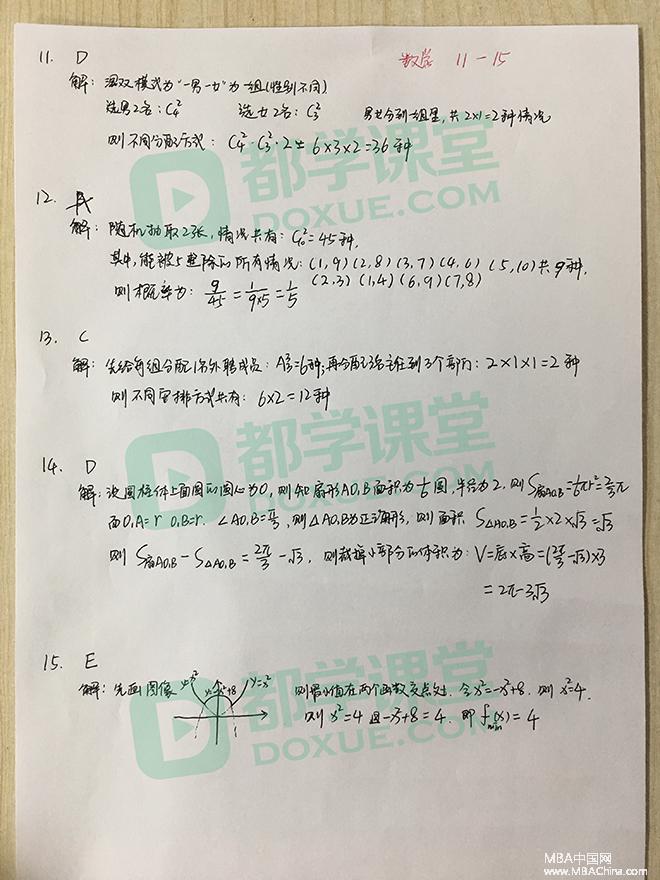 数学 11-15
11. D
解: 混双模式为"一男一女"为一组(性别不同)
选男2名: C₄² 选女2名: C₃² 男女分到组里, 共2×1=2种情况
则不同分配方式: C₄²·C₃²·2 = 6×3×2=36种
12. A
解: 随机抽取2张, 情况共有: C₁₀²=45种.
其中, 能被5整除的所有情况: (1,9)(2,8)(3,7)(4,6) (5,10)共9种.
(2,3) (1,4)(6,9)(7,8)
则概率为: 9/45 = 1/(9×5) = 1/5
13. C
解: 先给每组分配1名外聘成员: A₃³=6种; 再分配3名主任到3个部门: 2×1×1=2种
则不同安排方式共有: 6×2=12种
14. D
解: 设圆柱体上面圆的圆心为O, 则知扇形AO₁B面积为1/6圆, 半径为2, 则S扇AO₁B=1/6πr²=2/3π
而O₁A=r O₁B=r. ∠AO₁B=π/3, 则△AO₁B为正三角形, 则面积 S△AO₁B=1/2×2×√3=√3
则 S扇AO₁B-S△AO₁B=2π/3-√3, 则截掉小部分的体积为: V=底×高=(2π/3-√3)×3
=2π-3√3
15. E
解: 先画图像 y=x² y=-x²+8 y=x² 则最小值在两个函数交点处. 令x²=-x²+8, 则x²=4.
则x²=4 且-x²+8=4. 即 fmin(x)=4
都学课堂
DOXUE.COM
都学课堂
DOXUE.COM
都学课堂
DOXUE.COM
MBA中国网
www.MBAChina.com